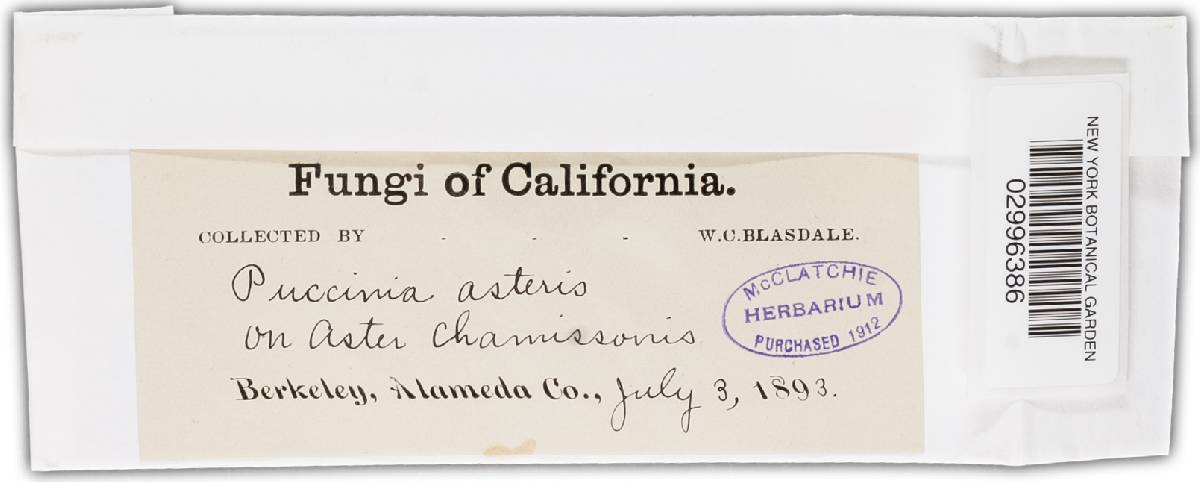 Fungi of California.
COLLECTED BY - - - W.C.BLASDALE.
Puccinia asteris
on Aster Chamissonis
Berkeley, Alameda Co., July 3, 1893.
McCLATCHIE
HERBARIUM
PURCHASED 1912
NEW YORK BOTANICAL GARDEN
02996386